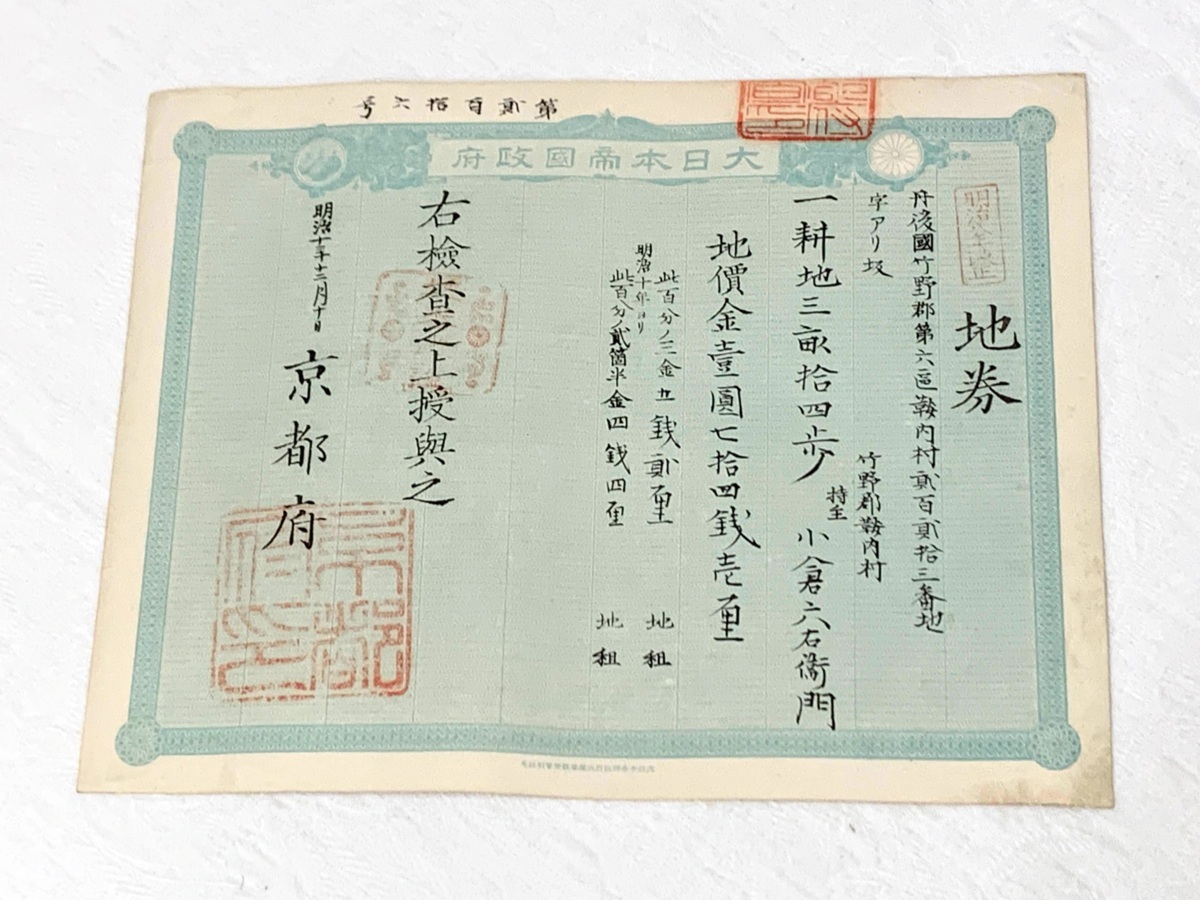 第貳百拾六号
大日本帝國政府
地券
丹後國竹野郡第六區鞍内村貳百貳拾三番地
字アリ坂
竹野郡鞍内村
一耕地三畝拾四歩
持主
小倉六右衛門
地價金壹圓七拾四銭壱厘
此百分ノ三金五銭貳厘
地租
明治十年ヨリ
此百分ノ貳箇半金四銭四厘
地租
右檢査之上授與之
明治十年十二月十日
京都府